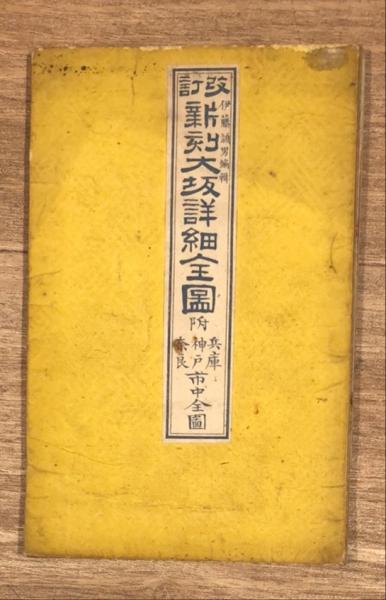 改訂
伊藤誠男編輯
新刻大坂詳細全圖
附
兵庫
神戸
奈良
市中全圖